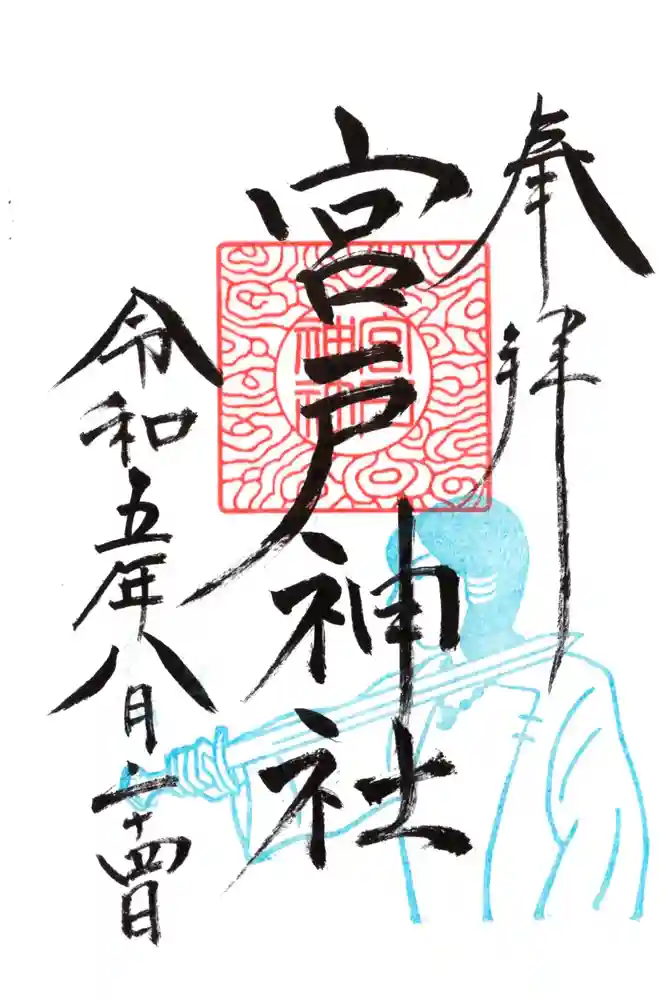 奉拝
宮戸神社
宮戸神社
令和五年八月二十四日